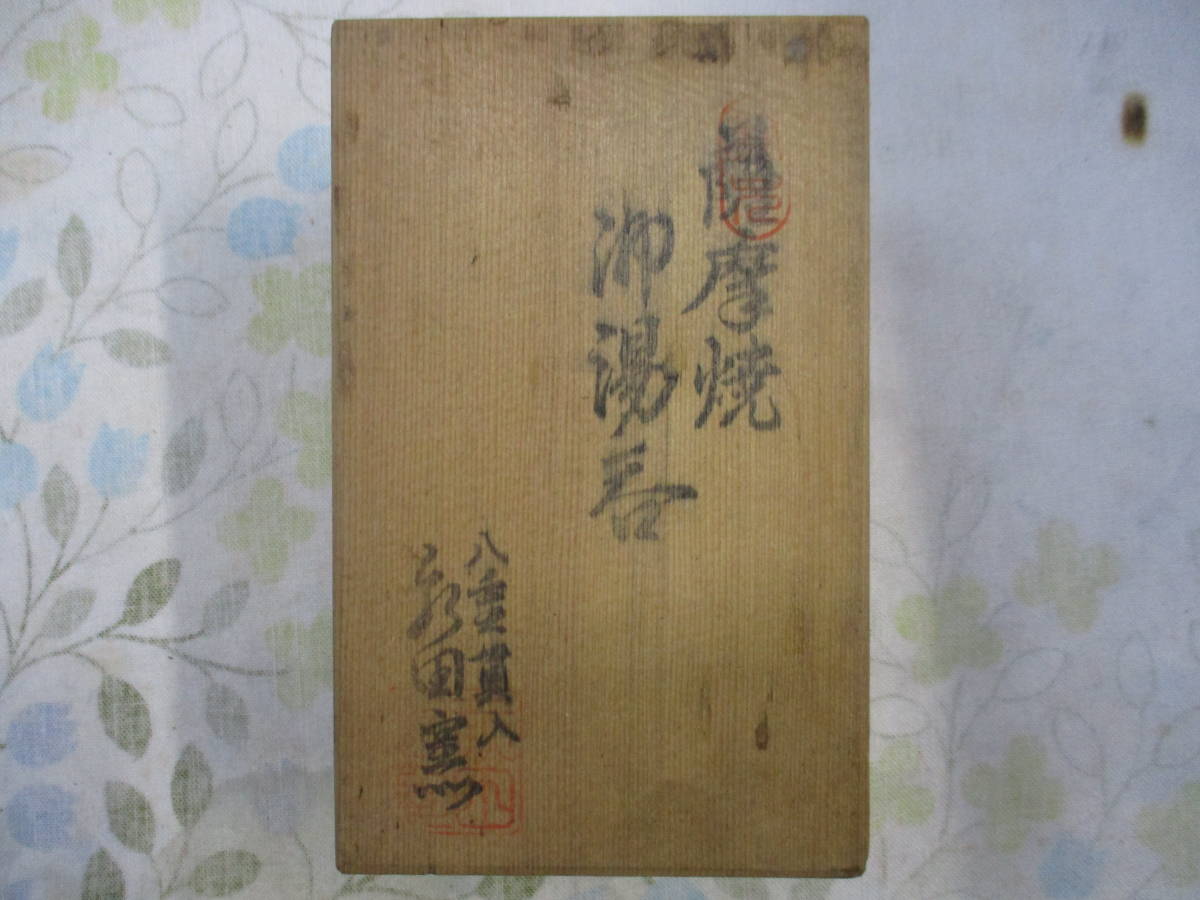 薩摩焼
御湯呑
八重貫入
田窯